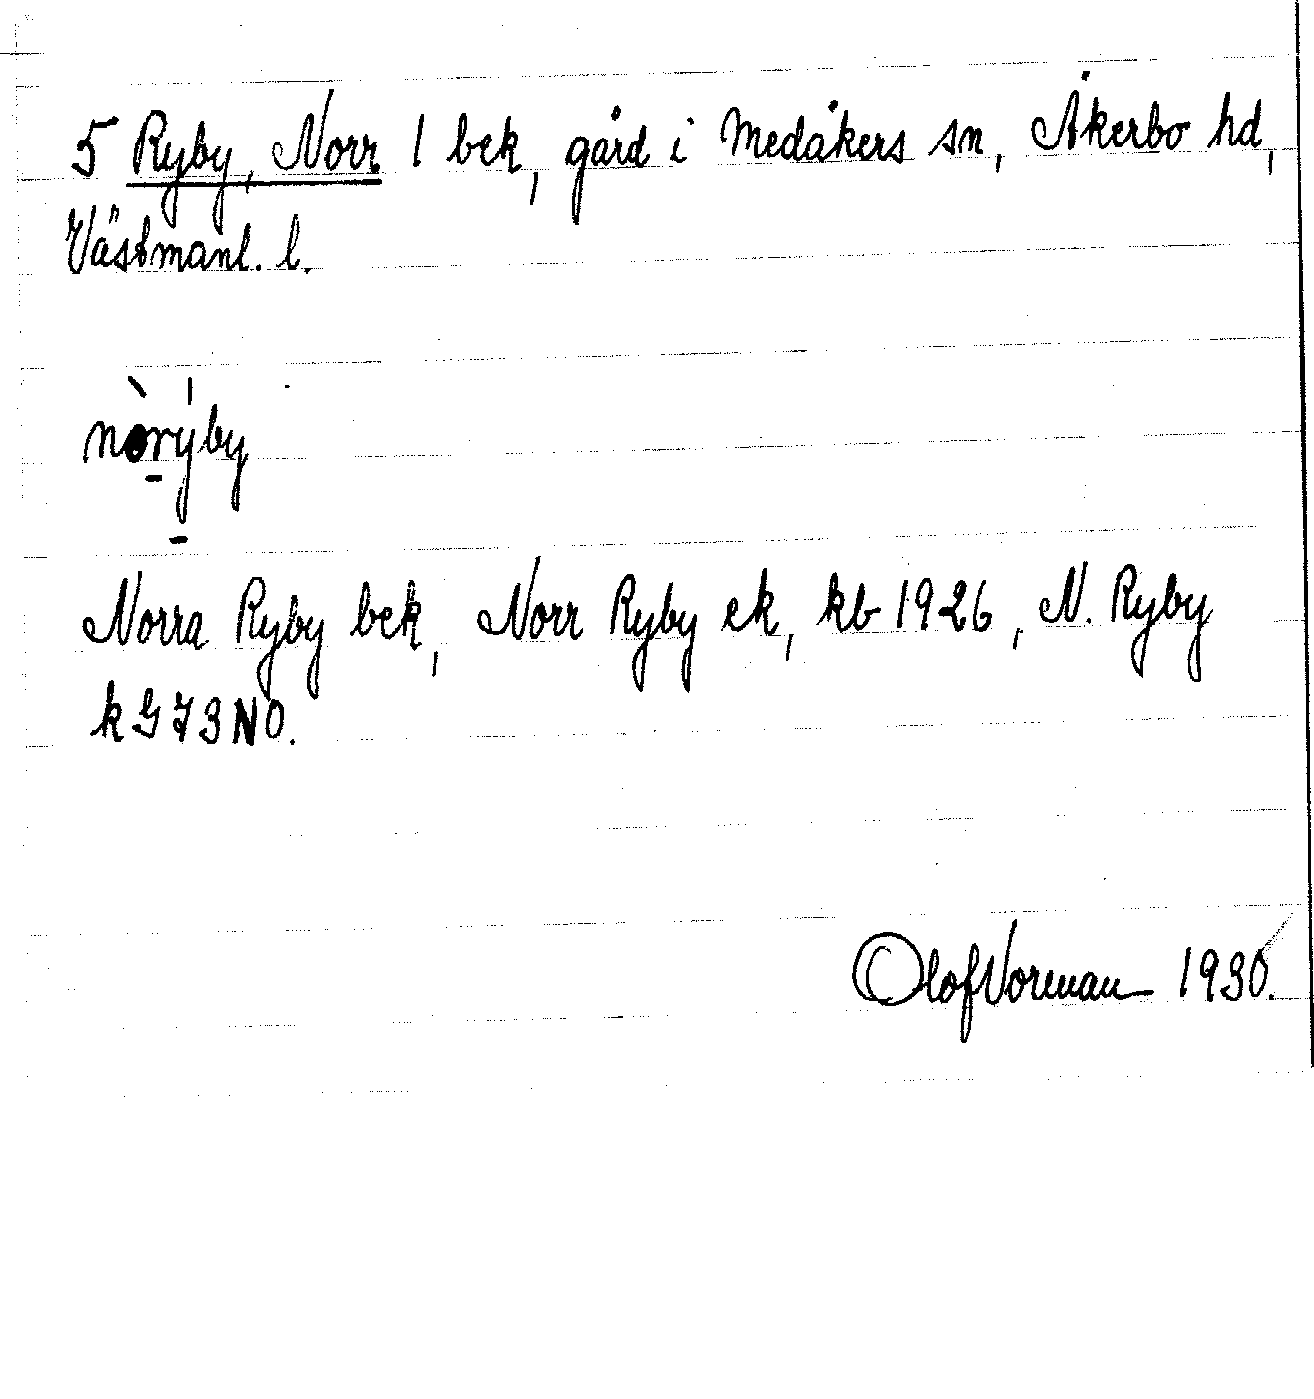 5 Ryby, Norr 1 bek, gård i Medåkers sn, Åkerbo hd,
Västmanl. l.
nòrýby
Norra Ryby bek, Norr Ryby ek, kb 1926, N. Ryby
k G73NO.
Olof Vorenau 1930.